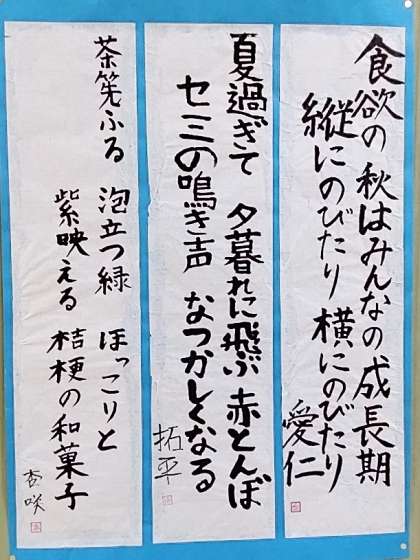 食欲の秋はみんなの成長期
縦にのびたり横にのびたり
愛仁
夏過ぎて 夕暮れに飛ぶ 赤とんぼ
セミの鳴き声 なつかしくなる
拓平
茶筅ふる 泡立つ緑 ほっこりと
紫映える 桔梗の和菓子
杏咲